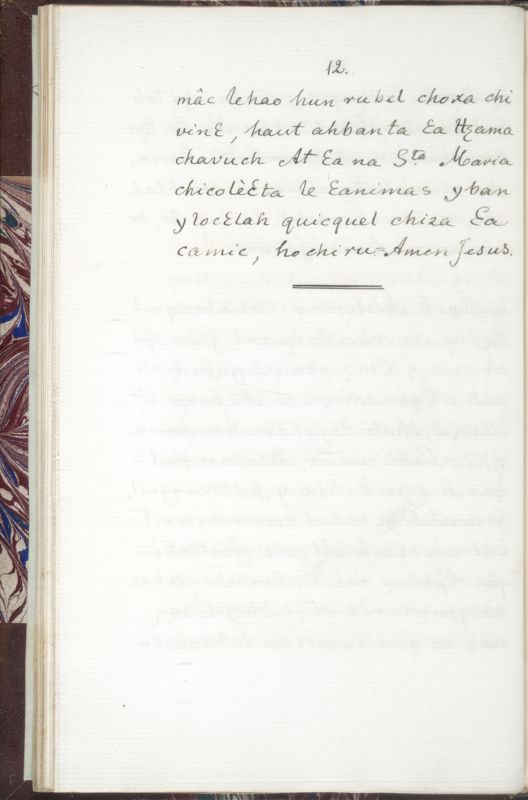 12.
mâc lehao hun rubel choxa chi
vinƐ, haut ahbanta Ɛa ttzama
chavuch At Ɛa na Sta Maria
chicolèƐta le Ɛanimas yban
ylocƐlah quicquel chiza Ɛa
camic, ho chi ru.= Amen Jesus.